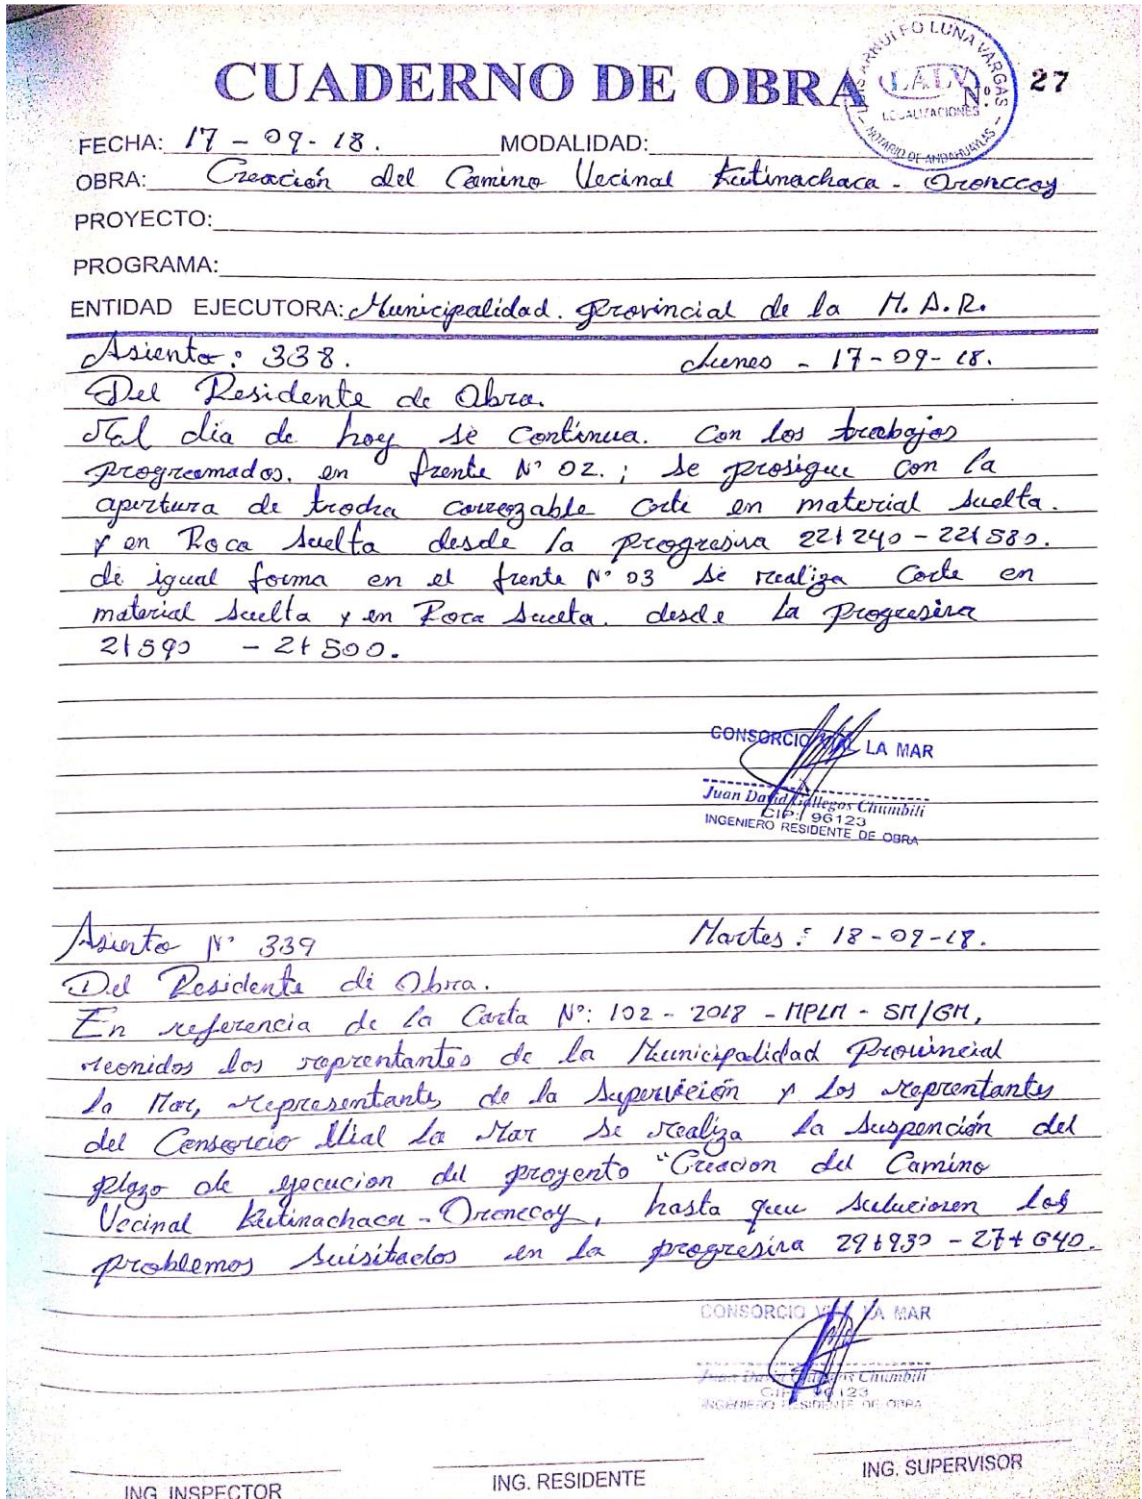 LUIS ARNULFO LUNA VARGAS
LALV
LEGALIZACIONES
NOTARIO DE ANDAHUAYLAS
CUADERNO DE OBRA N.º 27
FECHA: 17 - 09 - 18. MODALIDAD:
OBRA: Creación del Camino Vecinal Kutinachaca - Oronccoy
PROYECTO:
PROGRAMA:
ENTIDAD EJECUTORA: Municipalidad. provincial de la M. A. R.
Asiento: 338. Lunes - 17-09-18.
Del Residente de Obra.
Al dia de hoy se continua. Con los trabajos
programados. en frente N° 02. ; se prosigue con la
apertura de trocha carrozable corte en material suelta.
y en Roca suelta desde la progresiva 22+240 - 22+580.
de igual forma en el frente N° 03 se realiza Corte en
material suelta y en Roca suelta. desde la progresiva
2+590 - 2+500.
CONSORCIO VIAL LA MAR
Juan David Gallegos Chumbili
CIP: 96123
INGENIERO RESIDENTE DE OBRA
Asiento N° 339 Martes : 18-09-18.
Del Residente de Obra.
En referencia de la Carta N°: 102 - 2018 - MPLM - SM/GM,
reonidos los reprentantes de la Municipalidad Provincial
la Mar, representantes de la supervición y los reprentantes
del Consorcio Vial La Mar se realiza la suspención del
plazo de ejecucion del proyento "Creacion del Camino
Vecinal Kutinachaca - Oronccoy, hasta que solucionen los
problemos suisitados en la progresiva 29+930 - 27+640.
CONSORCIO VIAL LA MAR
Juan David Gallegos Chumbili
CIP: 96123
INGENIERO RESIDENTE DE OBRA
ING. INSPECTOR ING. RESIDENTE ING. SUPERVISOR